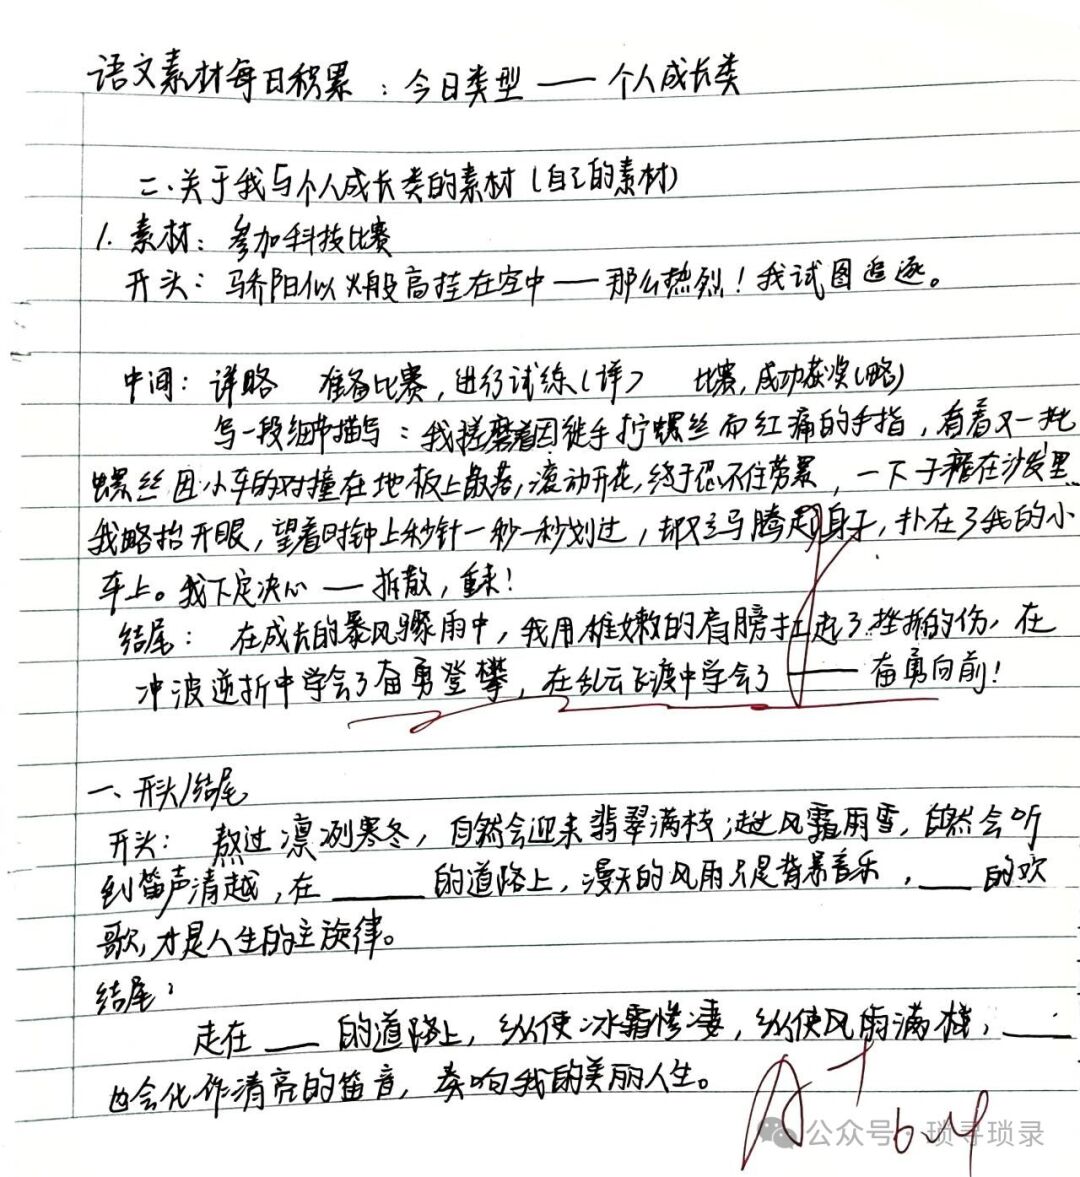 语文素材每日积累：今日类型——个人成长类
二、关于我与个人成长类的素材(自己的素材)
1.素材：参加科技比赛
开头：骄阳似火般高挂在空中——那么热烈！我试图追逐。
中间：详略 准备比赛，进行试练(详) 比赛，成功获奖(略)
写一段细节描写：我搓磨着因徒手拧螺丝而红痛的手指，看着又一批
螺丝因小车的对撞在地板上散落，滚动开花，终于忍不住劳累，一下子瘫在沙发里
我略抬开眼，望着时钟上秒针一秒一秒划过，却立马腾起身子，扑在了我的小
车上。我下定决心——拆散，重来！
结尾：在成长的暴风骤雨中，我用稚嫩的肩膀扛起了挫折的伤，在
冲波逆折中学会了奋勇登攀，在乱云飞渡中学会了——奋勇向前！
一、开头/结尾
开头：熬过凛冽寒冬，自然会迎来翡翠满枝；越过风霜雨雪，自然会听
到笛声清越，在____的道路上，漫天的风雨只是背景音乐，___的欢
歌，才是人生的主旋律。
结尾：
走在___的道路上，纵使冰霜惨凄，纵使风雨满栈，___
也会化作清亮的笛音，奏响我的美丽人生。
A+
公众号·琐寻琐录